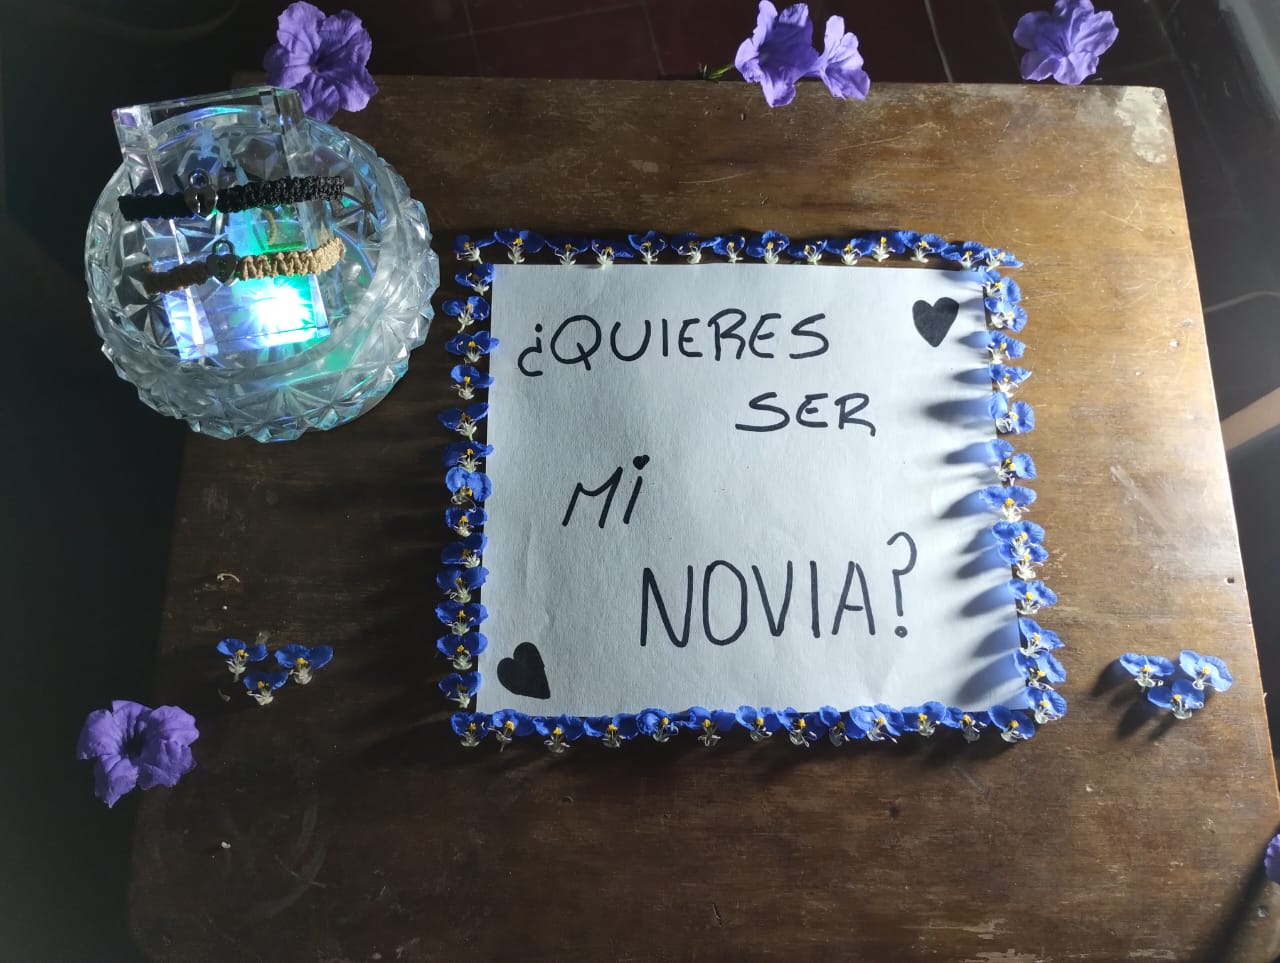 ¿QUIERES
SER
Mi
NOVIA?